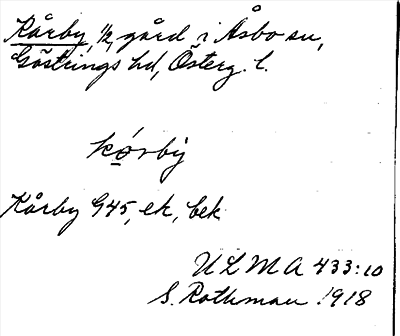 Kårby, 1/2, gård i Åsbo sn,
Göstrings hd, Österg. l.
kǫ́rby
Kårby G45, ek, bek
ULMA 433:10
S. Rothman 1918